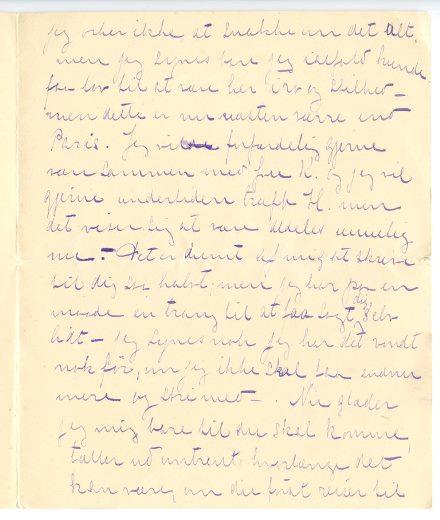 jeg orker ikke at snakke om det alt,
men jeg synes bare jeg ialfald kunde
faa lov til at være her i ro og stilhed –
men dette er nu næsten værre end
Paris. Jeg vil forfærdelig gjerne
være sammen med fru K. og jeg vil
gjerne undertiden træffe H. men
det viser sig at være aldeles umulig
nu. – Det er dumt af mig at skrive
til dig saa halvt; men jeg har paa en
maade en trang til at faa sagt dig, selv
lidt – jeg synes nok jeg har det vondt
nok før, om jeg ikke skal faa endnu
mere og stri med –. Nu glæder
jeg mig bare til du skal komme,
tæller ud omtrent hvorlænge det
kan være, om du først reiser til